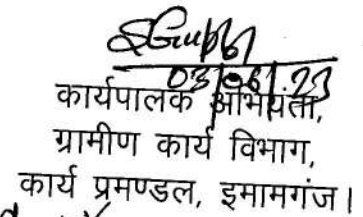 SGupta
03/06/23
कार्यपालक अभियंता,
ग्रामीण कार्य विभाग,
कार्य प्रमण्डल, इमामगंज।